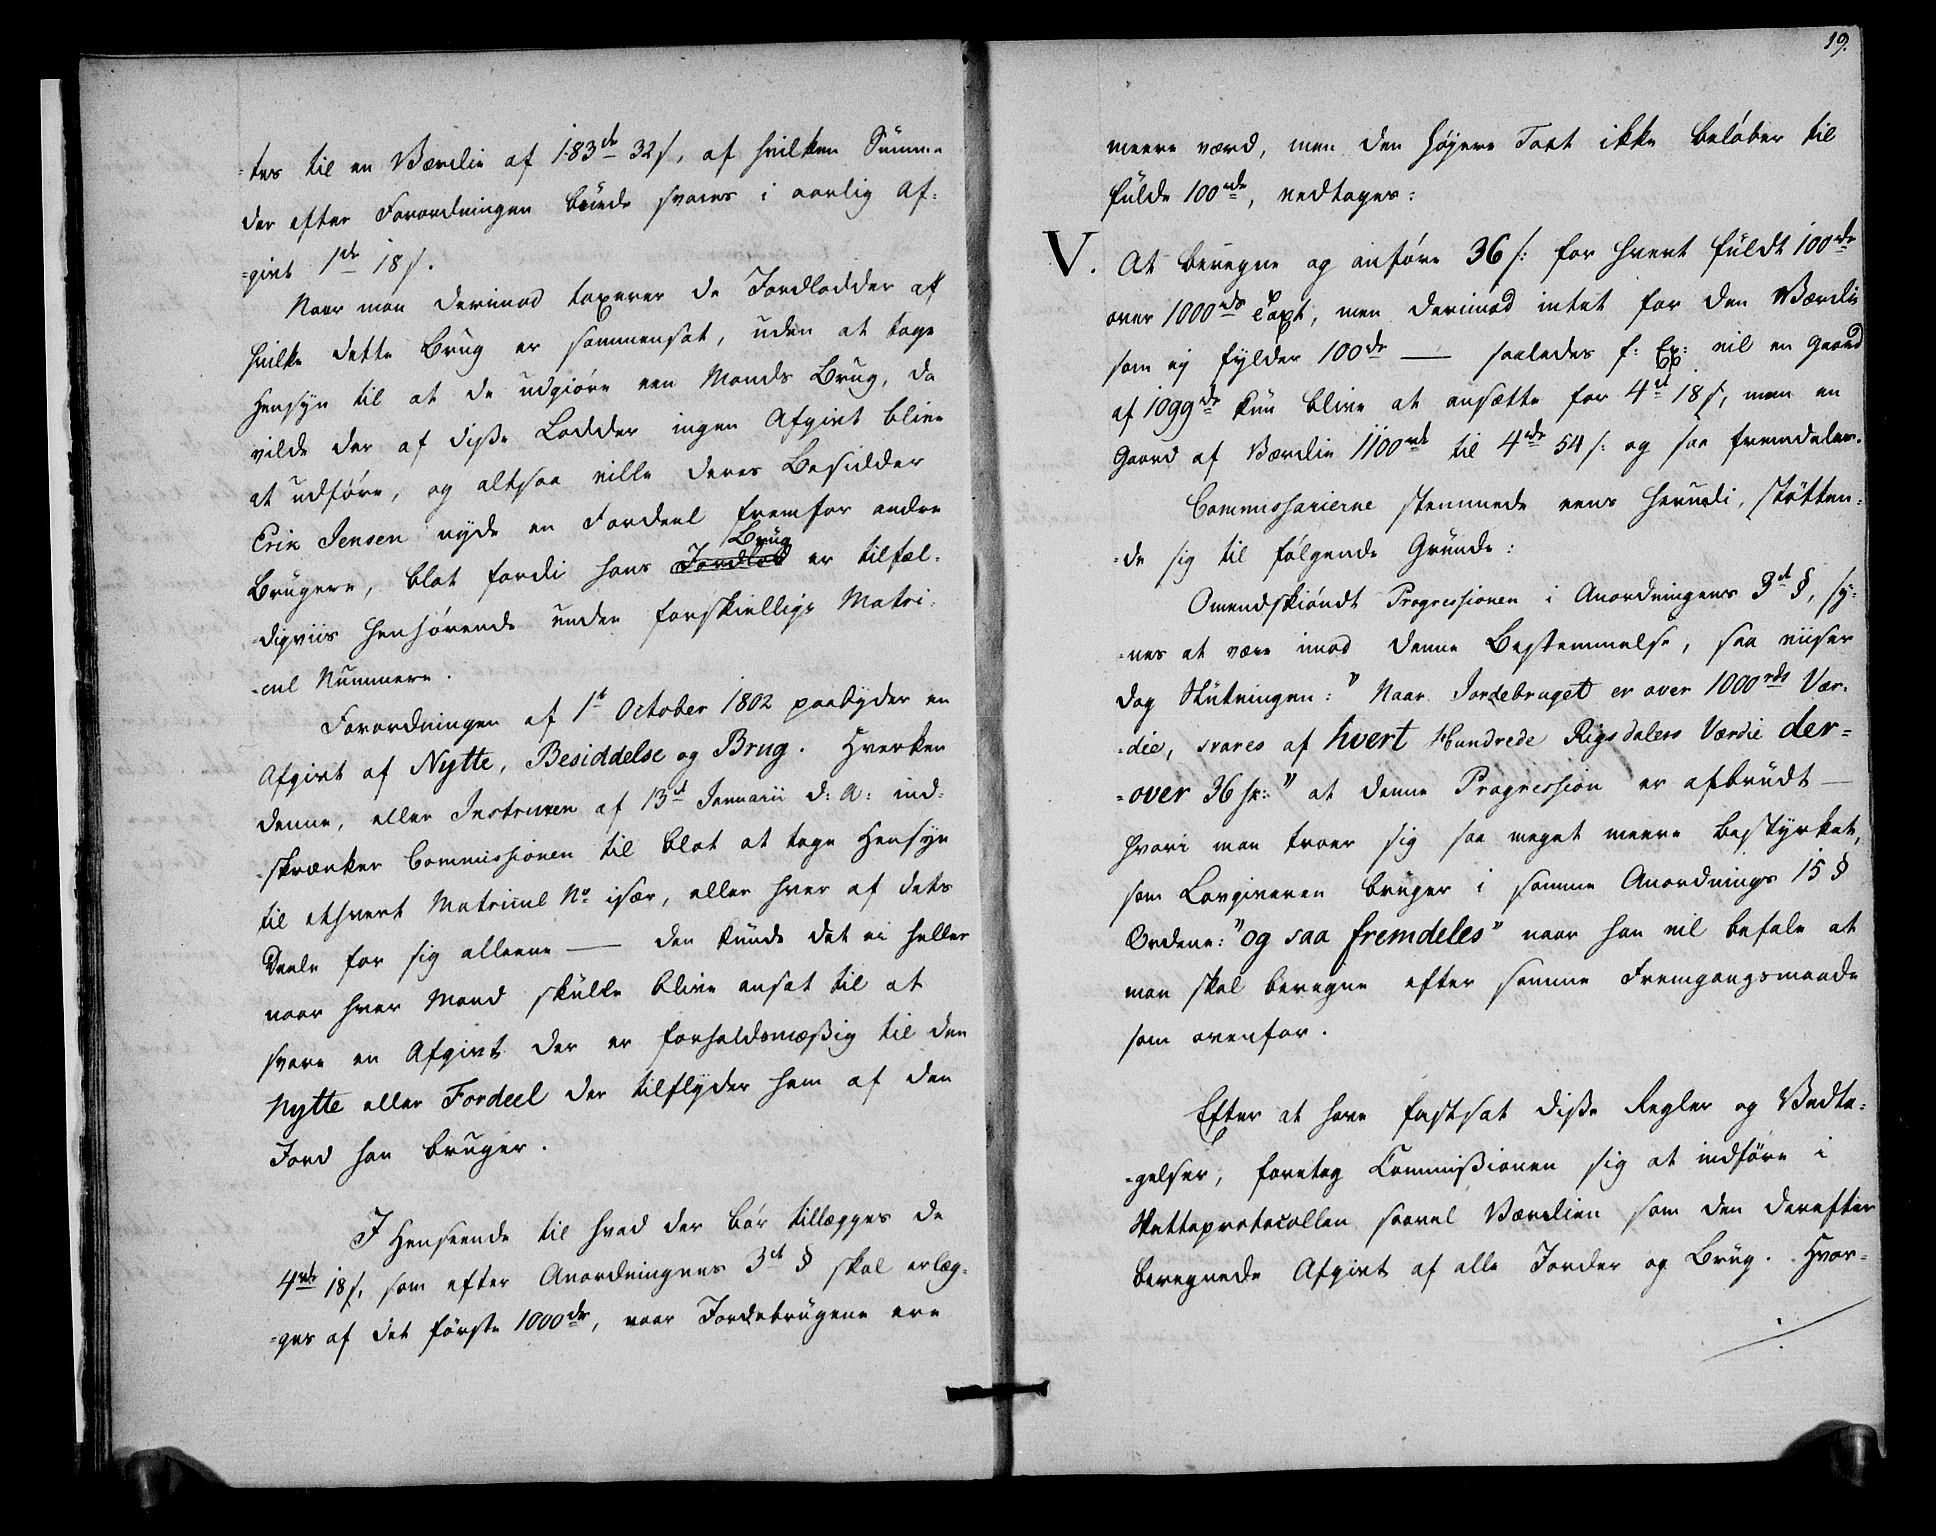 =tes til en Værdie af 183rd 32 s, af hvilken Summa
der efter Forordningen burde svares i aarlig Af=
=givt 1rd 18 s.
Naar man derimod taxerer de Jordlodder af
hvilke dette Brug er sammensat, uden at tage
Hensyn til at de udgiøre een Mands Brug, da
vilde der af disse Lodder ingen Afgivt blive
at udføre, og altsaa ville deres Besidder
Erik Jensen nyde en Fordeel fremfor andre
Brug
Brugere, blot fordi hans Jordlod er tilfæl=
=digviis henhørende under forskiellige Matri=
=cul Nummere.
Forordningen af 1st October 1802 paabyder en
Afgivt af Nytte, Besiddelse og Brug. Hverken
denne, eller Instruxen af 13d Januarii d: A: ind=
=skrænker Commissionen til blot at tage Hensyn
til ethvert Matricul No især, eller hver af dets
Deele for sig alleene — den kunde det ei heller
naar hver Mand skulle blive ansat til at
svare en Afgivt der er forholdsmæssig til den
Nytte eller Fordeel der tilflyder ham af den
Jord han bruger.
I Henseende til hvad der bør tillægges de
4rd 18 s, som efter Anordningens 3d § skal erlæg=
=ges af det første 1000rd, naar Jordebrugene ere
19.
meere værd, men den høyere Taxt ikke beløber til
fulde 100rd, vedtoges:
V. At beregne og anføre 36 s: for hvert fuldt 100rd
over 1000rd Taxt, men derimod intet for den Værdie
som ej fylder 100rd — saaledes f: Ex: vil en Gaard
af 1099rd kun blive at ansætte for 4rd 18 s, men en
Gaard af Værdie 1100rd til 4rd 54 s: og saa fremdeles.
Commissarierne stemmede eens herudi, støtten=
=de sig til følgende Grunde:
Omendskiøndt Progressionen i Anordningens 3d §, sy=
=nes at være imod denne Bestemmelse, saa viiser
dog Slutningen: "Naar Jordebruget er over 1000rds Vær=
=die, svares af hvert Hundrede Rigsdalers Værdie der=
=over 36 sk:" at denne Progression er afbrudt —
hvori man troer sig saa meget meere bestyrket,
som Lovgiveren bruger i samme Anordnings 15 §
Ordene: "og saa fremdeles" naar han vil befale at
man skal beregne efter samme Fremgangsmaade
som ovenfor.
Efter at have fastsat disse Regler og Vedta=
=gelser, foretog Commissionen sig at indføre i
Skatteprotocollen saavel Værdien som den derefter
beregnede Afgivt af alle Jorder og Brug. Hvor=